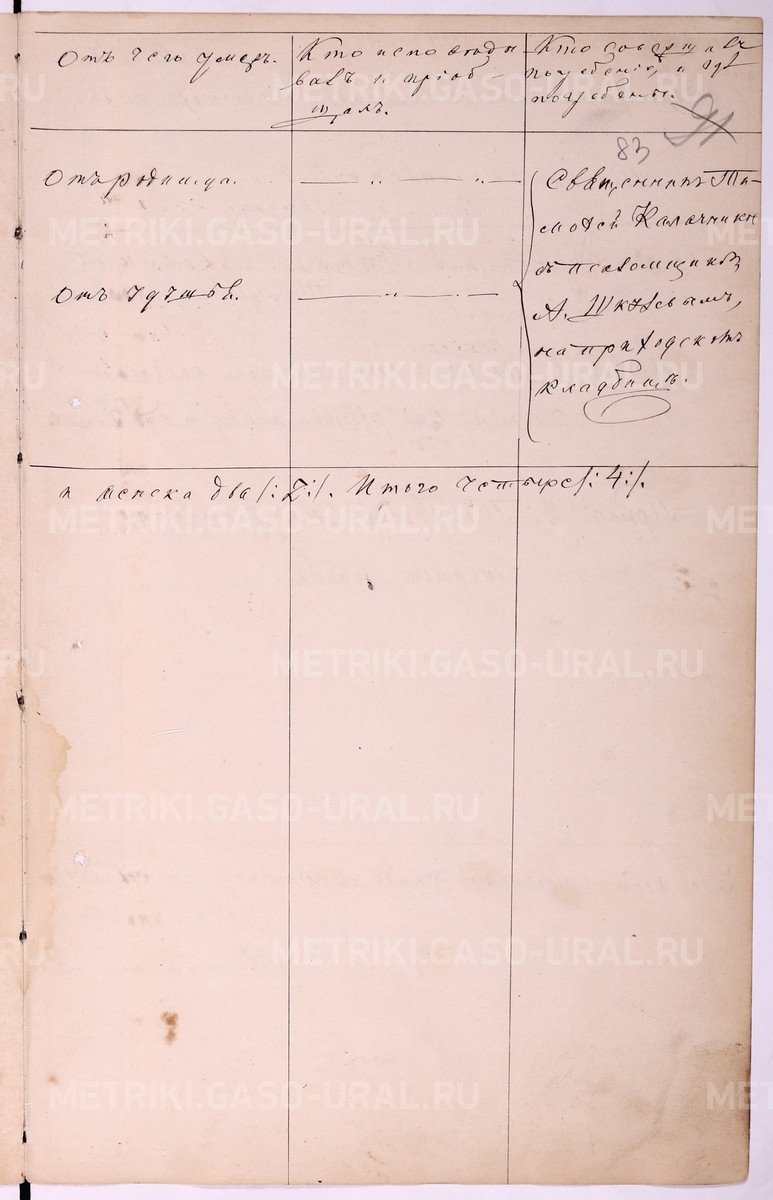 Отъ чего умеръ.
Кто исповѣды
валъ и пріоб-
щалъ.
Кто совершилъ
погребеніе, и гдѣ
погребены.
91
83
Отъ родимца.
Священникъ Ти-
моѳей
съ псаломщикомъ
А.
на приходскомъ
кладбищѣ.
Отъ
и женска два /:2:/. Итого четыре /:4:/.
METRIKI.GASO-URAL.RU